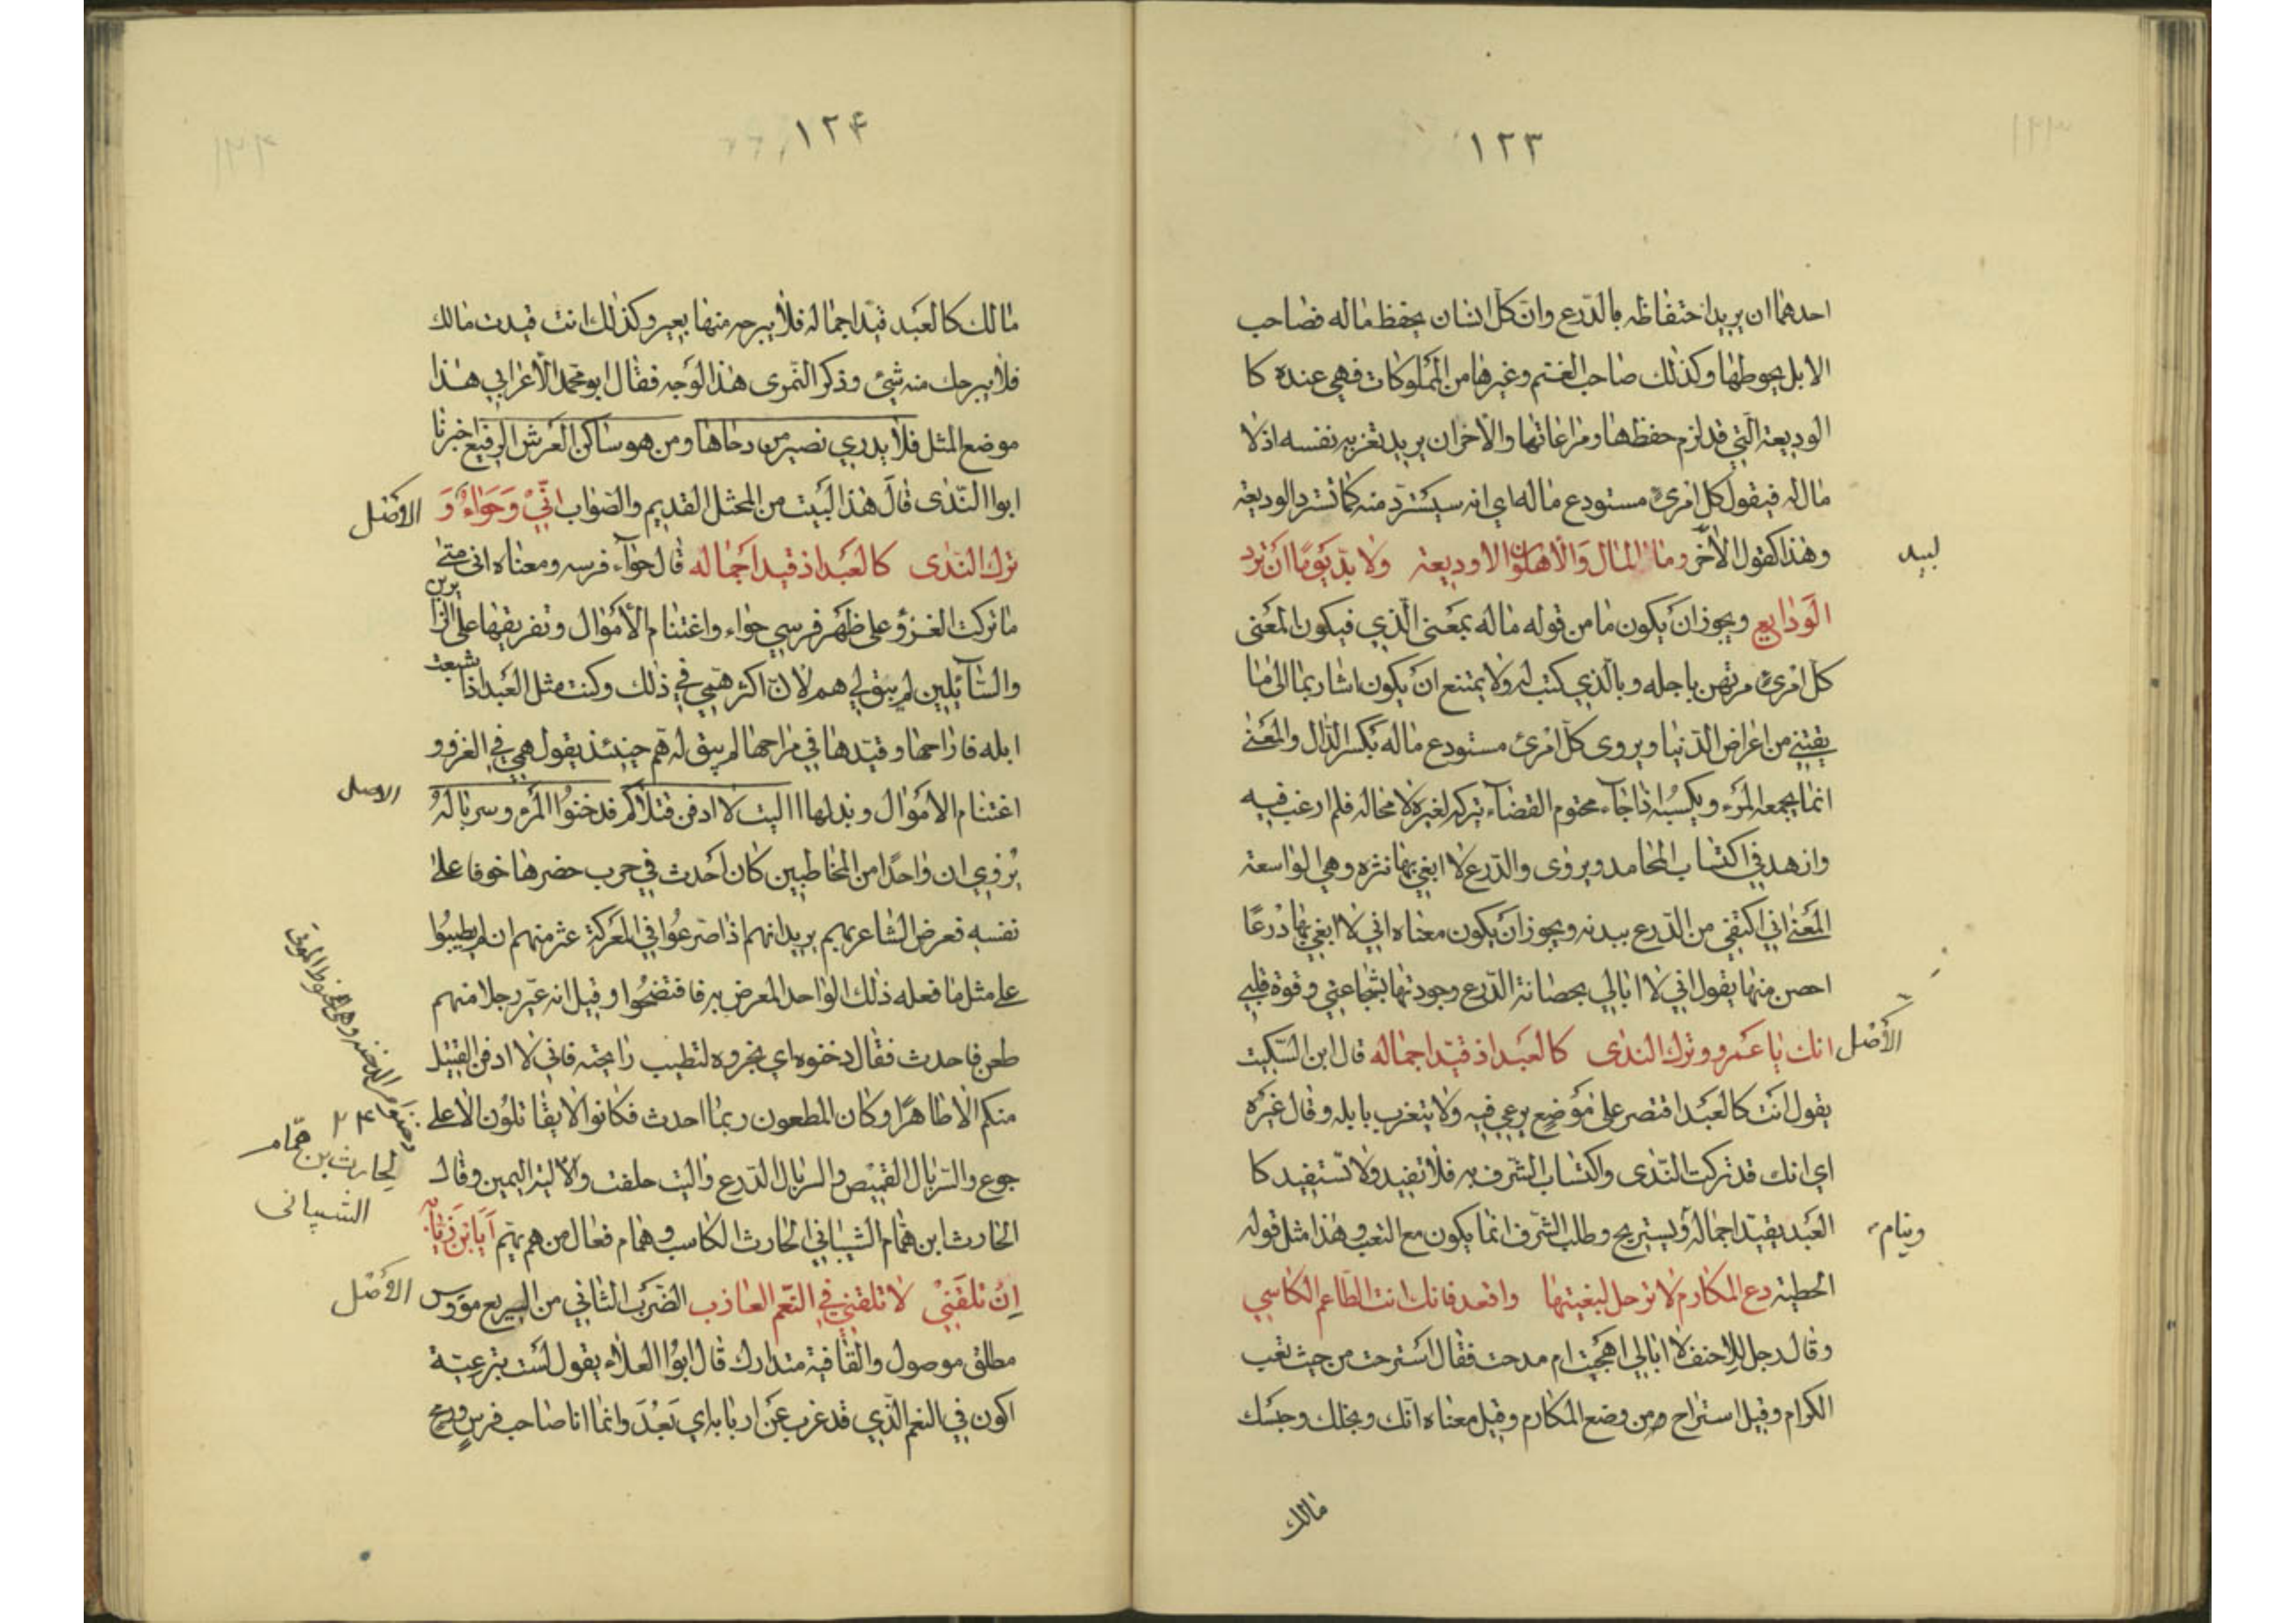 ١٢٣
احدهما ان يريد احتفاظه بالدّرع وانّ كلّ انسان يحفظ ماله فصاحب
الابل يحوطها وكذلك صاحب الغنم وغيرها من المملوكات فهي عنده كا
الوديعة الّتي قد لزم حفظها ومراعاتها والاخر ان يريد تعزيه نفسه اذ لا
مال له فيقول كل امرئ مستودع ماله اي انه سيسّترد منه كما تسترد الوديعة
وهذا كقول الاخر وما المال والاهلون الا وديعة ولا بدّ يومًا ان ترد
لبيد
الودايع ويجوز ان يكون ما من قوله ماله بمعنى الّذي فيكون المعنى
كل امرئ مرتهن باجله وبالّذي كتب له ولا يمتنع ان يكون اشار بما الى ما
يقتني من اعراض الدّنيا ويروى كلّ امرئ مستودع ماله بكسر الدّال والمعنى
انما يجمعه المرء ويكسبه اذا جآء محتوم القضآء تركه لغيره لا محالة فلم ارغب فيه
وازهد في اكتساب المحامد ويروى والدّرع لا ابغي بها نثره وهي الواسعة
المعنى اني اكتفي من الدّرع ببدنه ويجوز ان يكون معناه اني لا ابغي بها درعًا
احصن منها يقول اني لا ابالي بحصانة الدّرع وجودتها بشجاعتي وقوة قلبي
الأصل
انك يا عمرو وترك الندى كالعبد اذ قيّد اجماله قال ابن السّكيت
يقول انت كالعبد اقتصر على موضع يرعي فيه ولا يتغرب بابله وقال غيره
اي انك قد تركت النّدى واكتساب الشّرف به فلا تفيد ولا تستفيد كا
العبد يقيّد اجماله ويستريح وطلب الشّرف انما يكون مع التعب وهذا مثل قوله
وينام
الحطيئه دع المكارم لا ترحل لبغيتها واقعد فانك انت الطّاعم الكاسي
وقال رجل للاحنف لا ابالي اهجيت ام مدحت فقال استرحت من حيث تعب
الكرام وقيل استراح من وضع المكارم وقيل معناه انّك وبخلك وحبسك
مالك
١٢۴
مالك كالعبد قيّد اجماله فلا يبرحه منها بعير وكذلك انت قيدت مالك
فلا يبرحك منه شئ وذكر النّمرى هذا الوجه فقال ابو محمد الأعرابي هذا
موضع المثل فلا يدري نصير من دحاها ومن هو ساكن العرش الرفيع اخبرنا
ابوا النّدى قال هذا البيت من المحتل القديم والصّواب انّي وحوّاء و
الأصل
ترك النّدى كالعبد اذ قيد اجماله قال حوّآء فرسه ومعناه انى متى
ما تركت الغزو على ظهر فرسي حواء واغتنام الأموال وتفريقها على الزايرين
والسّآيلين لم يبق لي هم لان اكثر همّي في ذلك وكنت مثل العبد اذا شبعت
ابله فاراحها وقيّدها في مراحها لم يبق له همّ حينئذ يقول همي في الغزو و
اغتنام الأموال وبذلها اليت لا ادفن قتلاكم فدخنوا المرء وسرباله
الاصل
يروي ان واحدًا من المخاطبين كان احدث في حرب حضرها خوفا على
نفسه فعرض الشاعر بهم يريد انهم اذا صرعوا في المعركة عثر منهم ان لم يطيبوا
على مثل ما فعله ذلك الواحد المعرض به فافتضحوا وقيل انه عيّر رجلا منهم
طعن فاحدث فقال دخنوه اي بخروه لتطيب رايحته فاني لا ادفن القتيل
منكم الا طاهرًا وكان المطعون ربما احدث فكانوا لا يقاتلون الا على
جوع والسّربال القميص والسربال الدّرع واليت حلفت والاليّة اليمين وقال
٢۴
لحارث بن همّام
الشيبانى
الحارث ابن همّام الشيباني الحارث الكاسب وهمام فعال من هم يهمّ أيا بن زيّابة
إن تلقني لا تلقني في النّعم العازب الضّرب الثاني من السريع مؤوس
الأصل
مطلق موصول والقافية متدارك قال ابوا العلاء يقول لست بترعيّة
اكون في النعم الّذي قد عزب عن اربابه اي بَعُدَ وانما انا صاحب فرسٍ ورمح